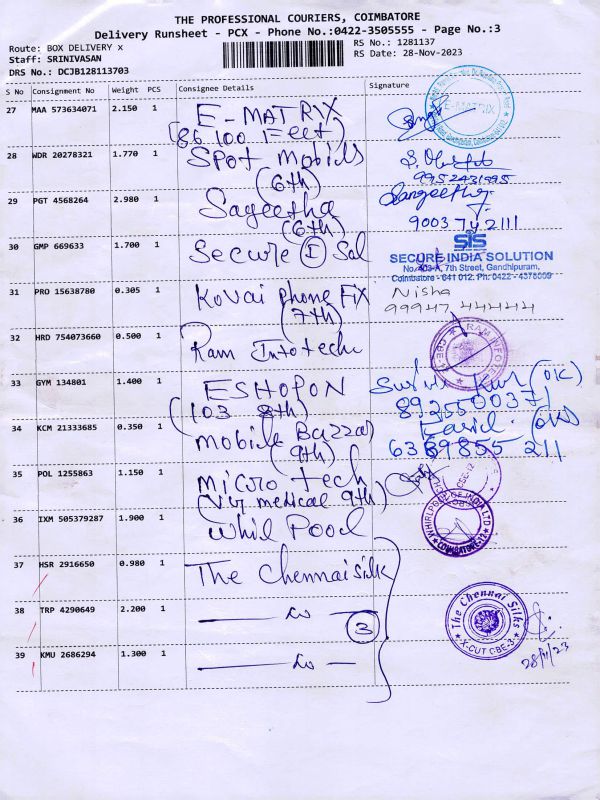 THE PROFESSIONAL COURIERS, COIMBATORE
Delivery Runsheet - PCX - Phone No.:0422-3505555 - Page No.:3
Route: BOX DELIVERY x
RS No.: 1281137
Staff: SRINIVASAN
RS Date: 28-Nov-2023
DRS No.: DCJB128113703
S No Consignment No Weight PCS Consignee Details Signature
27 MAA 573634071 2.150 1 E-MATRIX
(86 100 Feet)
E-MATRIX
28 WDR 20278321 1.770 1 Spot Mobils
(6th)
9952431495
29 PGT 4568264 2.980 1 Sageetha
(6th)
Sangeetha
90037 42111
30 GMP 669633 1.700 1 Secure (I) Sol
SIS
SECURE INDIA SOLUTION
No.403-A, 7th Street, Gandhipuram,
Coimbatore - 641 012. Ph: 0422 - 4376009
31 PRO 15638780 0.305 1 Kovai phone Fix
(7th)
Nisha
99947 44444
32 HRD 754073660 0.500 1 Ram Infotech
33 GYM 134801 1.400 1 ESHOPON
(103 8th)
34 KCM 21333685 0.350 1 Mobile Bazzar
(9th)
6369855 211
35 POL 1255863 1.150 1 Micro tech
(Vij medical 9th)
36 IXM 505379287 1.900 1 Whil Pool
WHIRLPOOL OF INDIA LTD
COIMBATORE-12
37 HSR 2916650 0.980 1 The Chennai silk
38 TRP 4290649 2.200 1
(3)
The Chennai Silks
X-CUT CBE-3
28/11/23
39 KMU 2686294 1.300 1